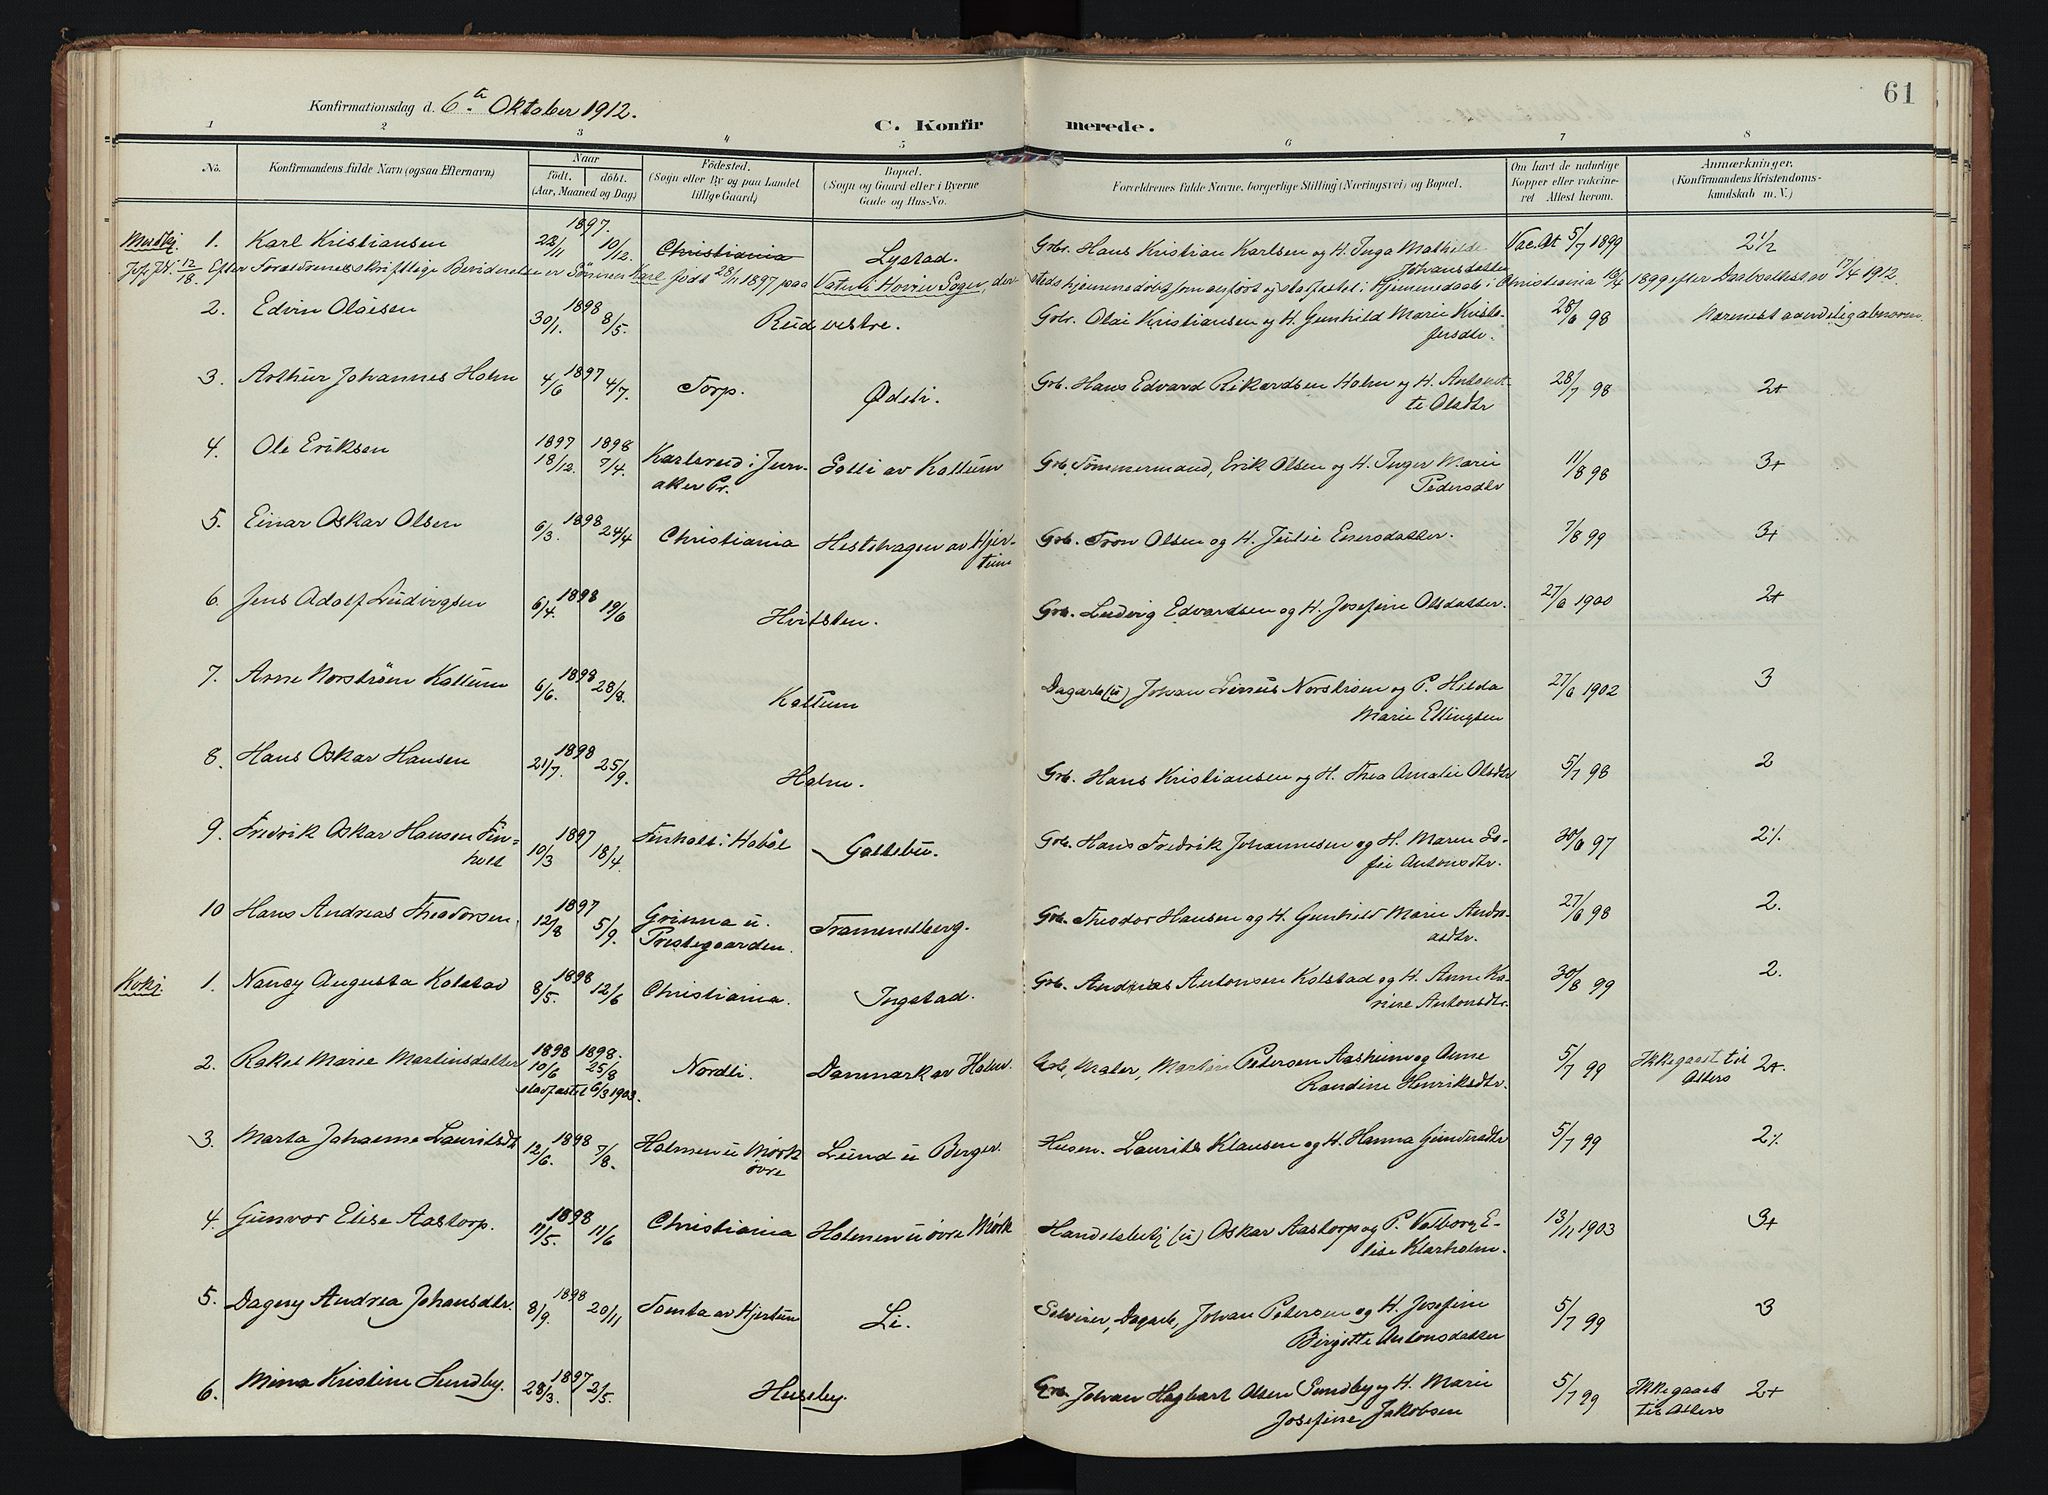 61
Konfirmationsdag d. 6.te Oktober 1912.
C. Konfirmerede.
1 2 3 4 5 6 7 8
No.
Konfirmandens fulde Navn (ogsaa Efternavn)
Naar
födt. döbt.
(Aar, Maaned og Dag)
Födested.
(Sogn eller By og paa Landet
tillige Gaard)
Bopæl.
(Sogn og Gaard eller i Byerne
Gade og Hus-No.
Forældrenes fulde Navne, borgerlige Stilling (Næringsvei) og Bopæl.
Om havt de naturlige
Kopper eller vakcine-
ret Attest herom.
Anmærkninger.
(Konfirmandens Kristendoms-
kundskab m. V.)
1. Karl Kristiansen 1897. 10/12. Christiania Lystad. Grbr. Hans Kristian Karlsen og H. Inga Mathilde Johansdatter Vac.At 5/7 1899 2 1/2
Efter Forældrenes skriftlige er Sönnen Karl födt 23/11 1897 paa i Hovin Sogn, der-
steds hjemmedöbt som anfört og stadfæstet i Hjemmedaab i Christiania 1899 efter Daabsattest av 17/4 1912.
2. Edvin Olaisen 1898 30/1. 8/5. Rud vestre. Grbr. Olai Kristiansen og H. Gunhild Marie Kristo-
fersdtr. 28/6 98 Nærmest aandelig abnorm.
3. Arthur Johannes Holm 1897 4/6 4/7. Torp. Ødeli. Grb. Hans Edvard Rikardsen Holm og H. Antonet-
te Olsdtr 28/7 98 2+
4. Ole Eriksen 1897 18/12. 1898 7/4. Karlsrud i Jevn-
aker Pr. Solli av Kattum Grb. Tømmermand, Erik Olsen og H. Inger Marie
Pedersdtr 11/8 98 3+
5. Einar Oskar Olsen 1898 6/3. 24/4 Christiania Hestehagen av Hjer-
tum Grb. Tron Olsen og H. Julie Enersdatter. 7/8 99 3+
6. Jens Adolf Ludvigsen 1898 6/4. 19/6 Hvitsten. Grb. Ludvig Edvardsen og H. Josefine Olsdatter. 27/6 1900 2+
7. Arne Norström Kattum 1898 6/6. 28/8. Kattum Dagarb (u) Johan Linus Norström og P. Hilda
Marie Ellingsen 27/6 1902 3
8. Hans Oskar Hansen 1898 21/7. 25/9. Holm. Grb. Hans Kristiansen og H. Thea Amalie Olsdtr 5/7 98 2
9. Fredrik Oskar Hansen Fin-
holt 1897 10/3 18/4. Finholt i Hobøl Gattebu. Grb. Hans Fredrik Johannesen og H. Maren So-
fie Antonsdtr. 30/6 97 2 1/.
10 Hans Andreas Theodorsen. 1897 12/8 5/9. Grinna u.
Prestegaarden. Framentberg. Grb. Theodor Hansen og H. Gunhild Marie Andre-
asdtr. 27/6 98 2.
1. Nancy Augusta Kolstad 1898 8/5. 12/6 Christiania. Ingstad. Grb. Andreas Antonsen Kolstad og H. Anne Ka-
rine Antonsdtr. 30/8 99 2.
2. Rakel Marie Martinsdatter 1898 10/6 1898. 25/8 stadfæstet 6/3 1903. Nordli. Danmark av Holm. Grb, Maler, Martin Petersen Aasheim og Anne
Randine Henriksdtr. 5/7 99 Ikke gaat til
Alters 2+.
3. Marta Johanne Lauritsdt 1898 12/6. 7/8. Holmen u Mørk
övre Lund u Berger. Husm. Laurits Klausen og H. Hanna Gundersdtr 5/7 99 2 1/.
4. Gunvor Elise Aastorp. 1898 11/5. 11/6 Christiania Holmen u övre Mørk Handelsbetj (u) Oskar Aastorp og P. Valborg E-
lise Klarholm. 13/11 1903 3+
5. Dagny Andrea Johansdtr. 1898 8/9. 20/11 Tomta av Hjertum Li. Selveier, Dagarb, Johan Petersen og H. Josefine
Birgitte Antonsdatter 5/7 99 3
6. Mina Kristine Sundby. 1897 28/3. 2/5. Huseby. Grb. Johan Hagbart Olsen Sundby og H. Marie
Josefine Jakobsen 5/7 99 Ikke gaaet
til Alters 2+